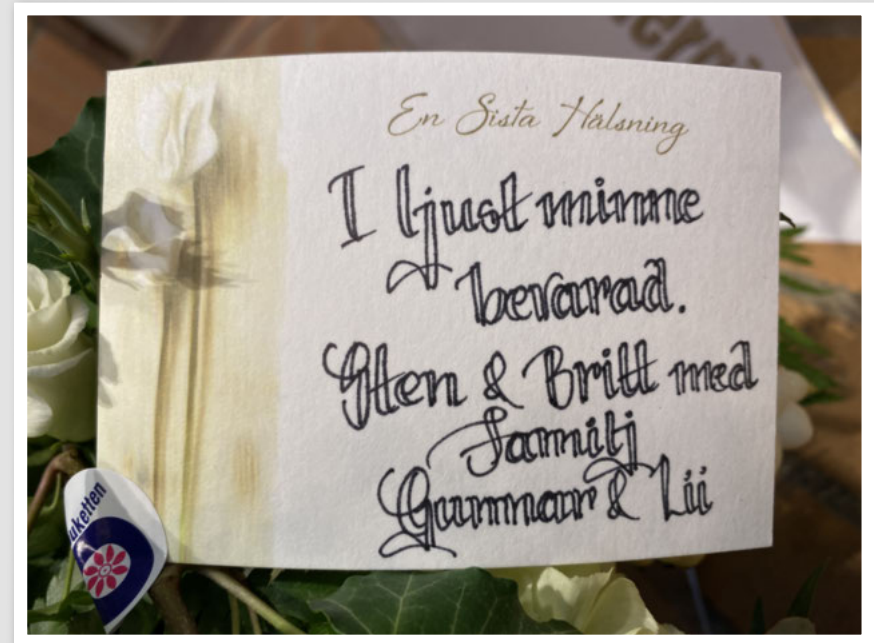 En Sista Hälsning
I ljust minne
bevarad.
Sten & Britt med
Familj
Gunnar & Lii
uketten